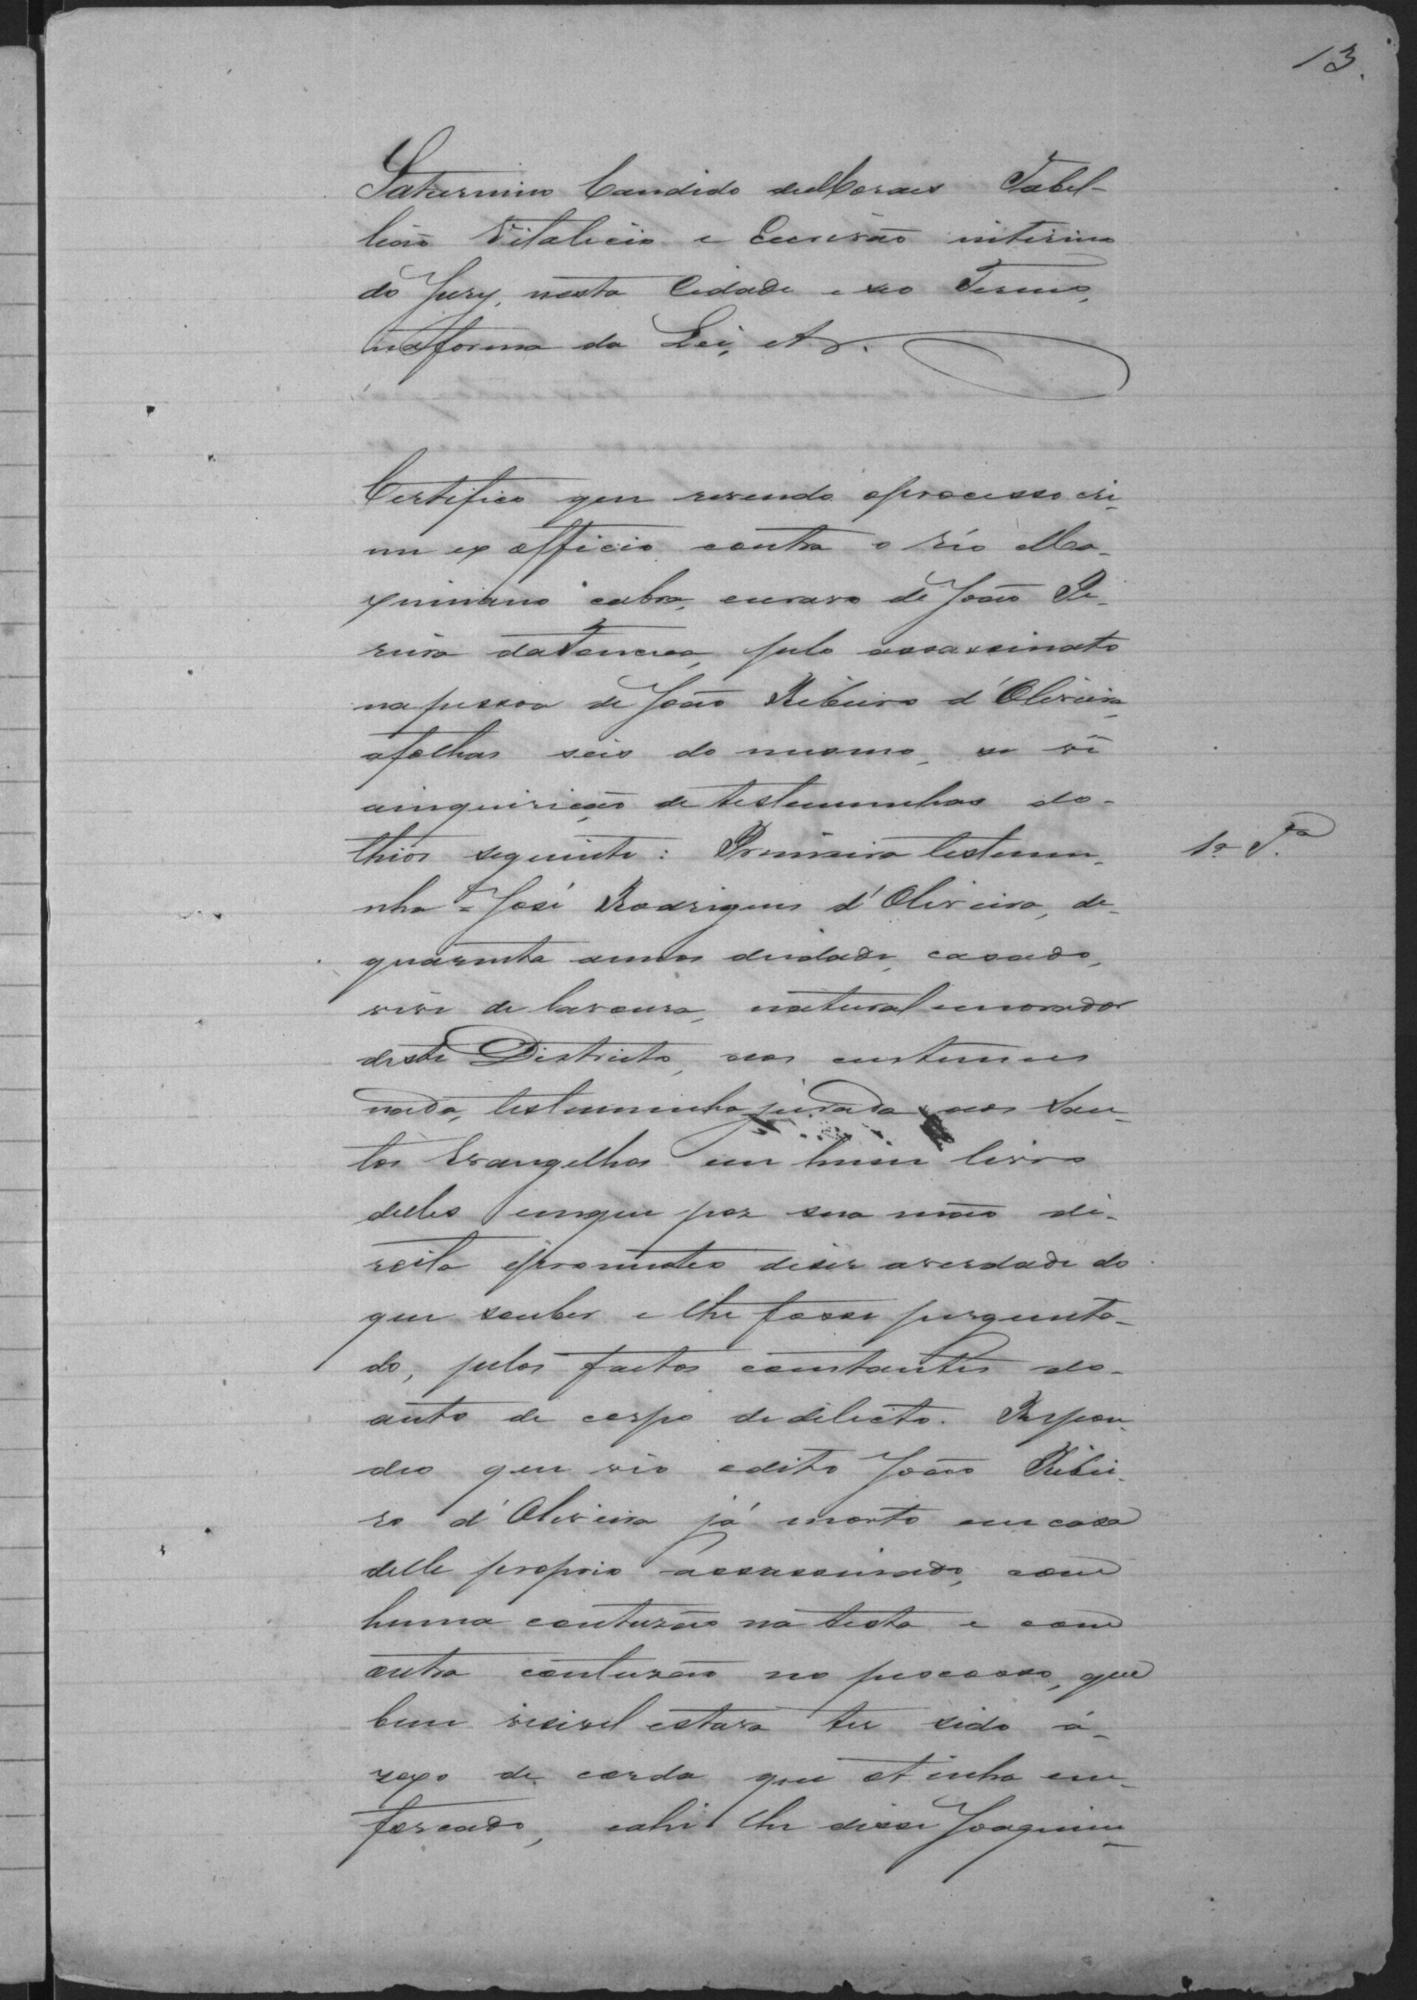 13.
Saturnino Candido de Moraes Tabel-
lião Vitalicio e Escrivão interino
do Jury, nesta Cidade e seo Termo,
na forma da Lei, etc.
Certifico que revendo oprocesso cri-
me ex officio contra o réo Ma-
ximiano cabra, escravo de João Pe-
reira da Fonceca, pelo assassinato
napessoa de João Ribeiro d'Oliveira,
afolhas seis do mesmo, se vê
ainquirição de testemunhas do-
thior seguinte: Primeira testemu-
1ª T.ª
nha = José Rodrigues d'Oliveira, de-
quarenta annos deidade, casado,
vive de lavoura, natural emorador
deste Districto, aos custumes
nada, testemunha jurada aos San-
tos Evangelhos em hum livro
delles emque poz sua mão di-
reita eprometeo dizer averdade do
que souber e lhe fosse pergunta-
do, pelos factos constantes do-
auto de corpo dedelicto. Respon-
deo que vio odito João Ribei-
ro d'Oliveira já morto em casa
delle proprio assassinado, com
huma contuzão na testa e com
outra contuzão no pescosso, que
bem visivel estava ter sido o-
roxo de corda que otinha en-
forcado, eahi lhe disse Joaquim